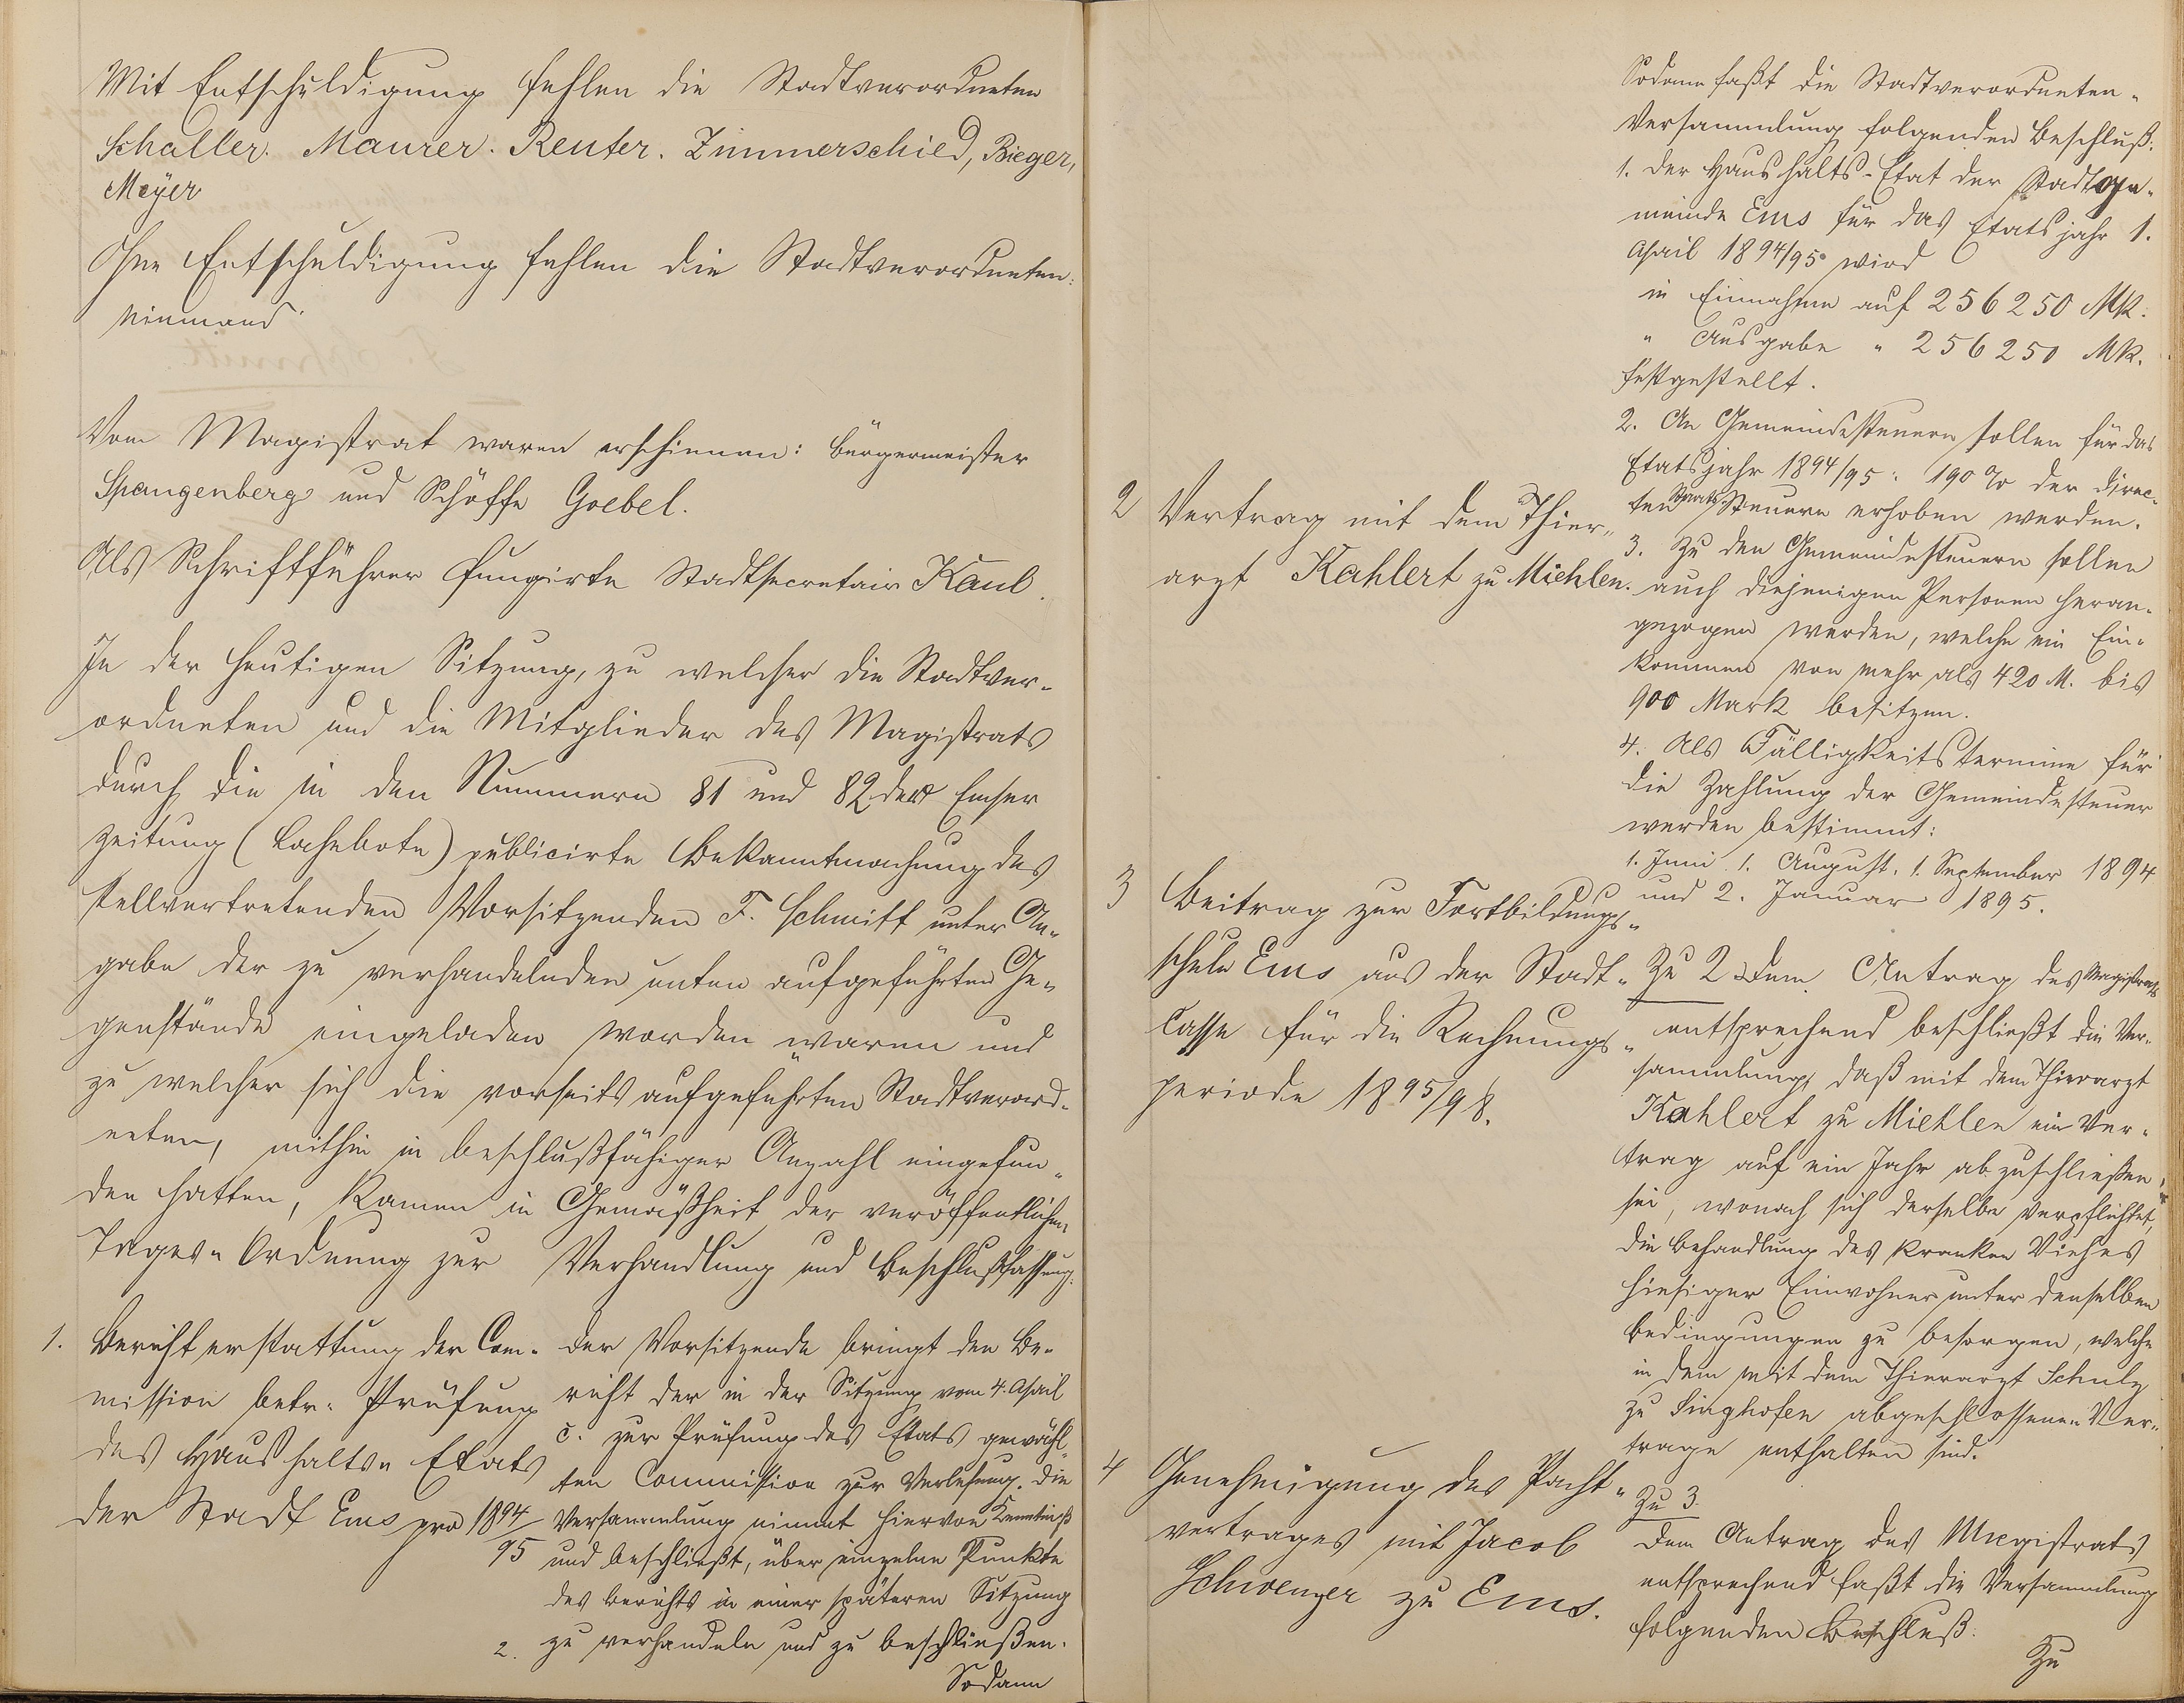 Mit Entschuldigung fehlen die Stadtverordneten
Schaller. Maurer. Reuter. Zimmerschied, Bieger,
Meÿer
Ohne Entschuldigung fehlen die Stadtverordneten:
Niemand
Vom Magistrat waren erschienen: Bürgermeister
Spangenberg und Schöffe Goebel.
Als Schriftführer fungirte Stadtsecretair Kaul.
In der heutigen Sitzung, zu welcher die Stadtver-
ordneten und die Mitglieder des Magistrats
durch die in den Nummern 81 und 82 der Emser
Zeitung (Lahnbote) publicirte Bekanntmachung des
stellvertretenden Vorsitzenden F. Schmitt unter An-
gabe der zu verhandelnden unten aufgeführten Ge-
genstände eingeladen worden waren und
zu welcher sich die vorseits aufgeführten Stadtverord-
neten, mithin in beschlußfähiger Anzahl eingefun-
den hatten, kamen in Gemäßheit der veröffentlichten
Tages-Ordnung zur Verhandlung und Beschlußfassung:
1. Berichterstattung der Com-
mission betr. Prüfung
des Haushalts-Etats
der Stadt Ems pro 1894/
95
Der Vorsitzende bringt den Be-
richt der in der Sitzung vom 4. April
c. zur Prüfung des Etats gewähl-
ten Commission zur Verlesung. Die
Versammlung nimmt hiervon Kenntniß
und beschließt, über einzelne Punkte
des Berichts in einer späteren Sitzung
zu verhandeln und zu beschließen.
2.
Sodann
Sodann faßt die Stadtverordneten-
Versammlung folgenden Beschluß:
1. Der Haushalts-Etat der Stadtge-
meinde Ems für das Etatsjahr 1.
April 1894/95 wird
in Einnahme auf 256250 Mk.
" Ausgabe " 256250 Mk.
festgestellt.
2. An Gemeindesteuern sollen für das
Etatsjahr 1894/95: 190 % der direc-
ten Staats-Steuern erhoben werden.
3. Zu den Gemeindesteuern sollen
auch diejenigen Personen heran-
gezogen werden, welche ein Ein-
kommen von mehr als 420 M. bis
900 Mark besitzen.
4. Als Fälligkeitstermine für
die Zahlung der Gemeindesteuer
werden bestimmt:
1. Juni 1. August. 1. September 1894
und 2. Januar 1895.
2 Vertrag mit dem Thier-
arzt Kahlert zu Miehlen.
Zu 2 Dem Antrag des Magistrats
entsprechend beschließt die Ver-
sammlung, daß mit dem Thierarzt
Kahlert zu Miehlen ein Ver-
trag auf ein Jahr abzuschließen
sei, wonach sich derselbe verpflichtet,
die Behandlung des kranken Viehes
hiesiger Einwohner unter denselben
Bedingungen zu besorgen, welche
in dem mit dem Thierarzt Schulz
zu Singhofen abgeschlossenen Ver-
trage enthalten sind.
3 Beitrag zur Fortbildungs-
schule Ems aus der Stadt-
casse für die Rechnungs-
periode 1895/98.
Zu 3.
Dem Antrag des Magistrats
entsprechend faßt die Versammlung
folgenden Beschluß:
4 Genehmigung des Pacht-
vertrages mit Jacob
Schwenzer zu Ems.
Zu